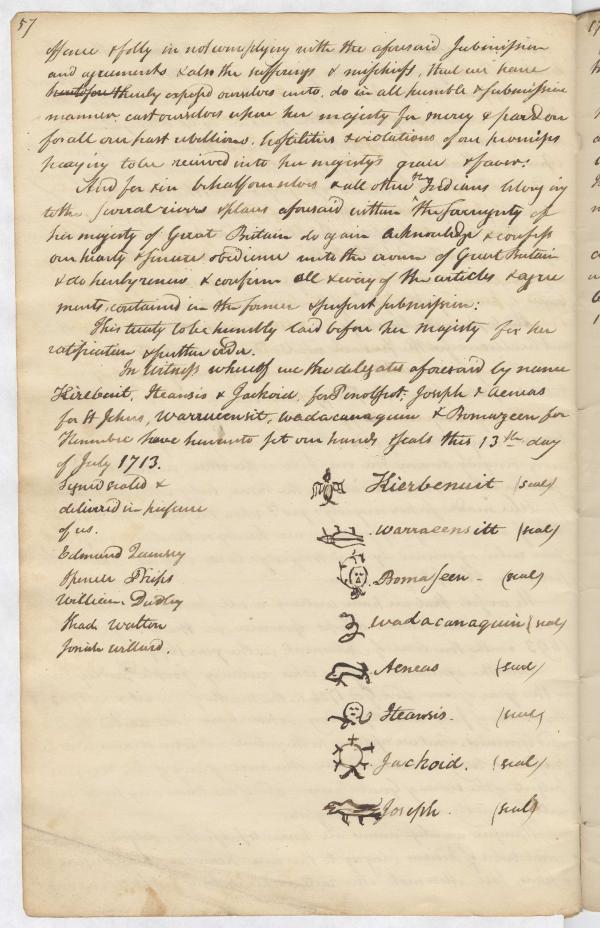 57
offence & folly in not complying with the aforesaid Submission
and agreements & also the sufferings & mischiefs, that we have
heretofore thereby exposed ourselves unto, do in all humble & submissive
manner cast ourselves upon her majesty for mercy & pardon
for all our past rebellions, hostilities & violations of our promises
praying to be received into her majestys grace & favor:
And for & in behalf ourselves & all other the Indians belonging
to the several rivers & places aforesaid within the Sovreignty of
her majesty of Great Britain do again acknowledge & confess
our hearty & sincere obedience unto the crown of Great Britain
& do hereby renew & confirm all & every of the articles & agree
ments, contained in the former & present submission:
This treaty to be humbly laid before her Majesty for her
ratification & further order.
In Witness whereof we the delegates aforesaid by name
Kirebenit, Iteansis & Jackoid, for Penobscot; Joseph & Aeneas
for St Johns, Warraeensit, Wadacanaquin & Bomazeen for
Kennebec have hereunto set our hands & seals this 13th day
of July 1713.
Signed sealed &
delivered in presence
of us.
Edmund Quinsey
Spencer Phips
William Dudley
Shad. Walton
Josiah Willard.
Kierbenuit (seal)
Warraeensitt (seal)
Bomaseen - (seal)
Wadacanaquin (seal)
Aeneas (seal)
Iteansis. (seal)
Jackoid. (seal)
Joseph. (seal)